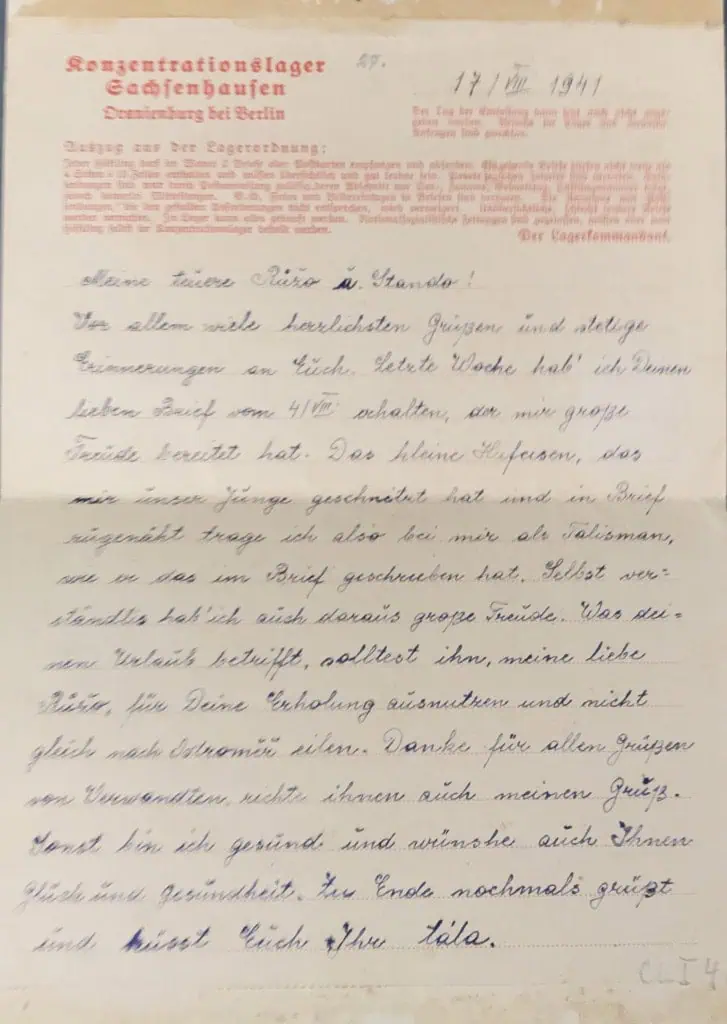 Konzentrationslager
Sachsenhausen
Oranienburg bei Berlin
27.
17/VIII 1941
Der Tag der Entlassung kann jetzt noch nicht ange-
geben werden. Besuche im Lager sind verboten.
Anfragen sind zwecklos.
Auszug aus der Lagerordnung:
Jeder Häftling darf im Monat 2 Briefe oder Postkarten empfangen und absenden.
Der Lagerkommandant.
Meine teuere Růžo a. Stando!
Vor allem viele herrlichsten Grüßen und stetige
Erinnerungen an Euch. Letzte Woche hab' ich Deinen
lieben Brief vom 4/VIII erhalten, der mir große
Freude bereitet hat. Das kleine Hufeisen, das
mir unser Junge geschnitzt hat und in Brief
zugenäht trage ich also bei mir als Talisman,
wie er das im Brief geschrieben hat. Selbst ver=
ständlis hab' ich auch daraus große Freude. Was dei=
nen Urlaub betrifft, solltest ihn, meine liebe
Růžo, für Deine Erholung ausnutzen und nicht
gleich nach Ostroměř eilen. Danke für allen Grüßen
von Verwandten, richte ihnen auch meinen Gruß.
Sonst bin ich gesund und wünshe auch Ihnen
Glück und Gesundheit. Zu Ende nochmals grüßt
und küsst Euch Ihr táta.
CL I 4